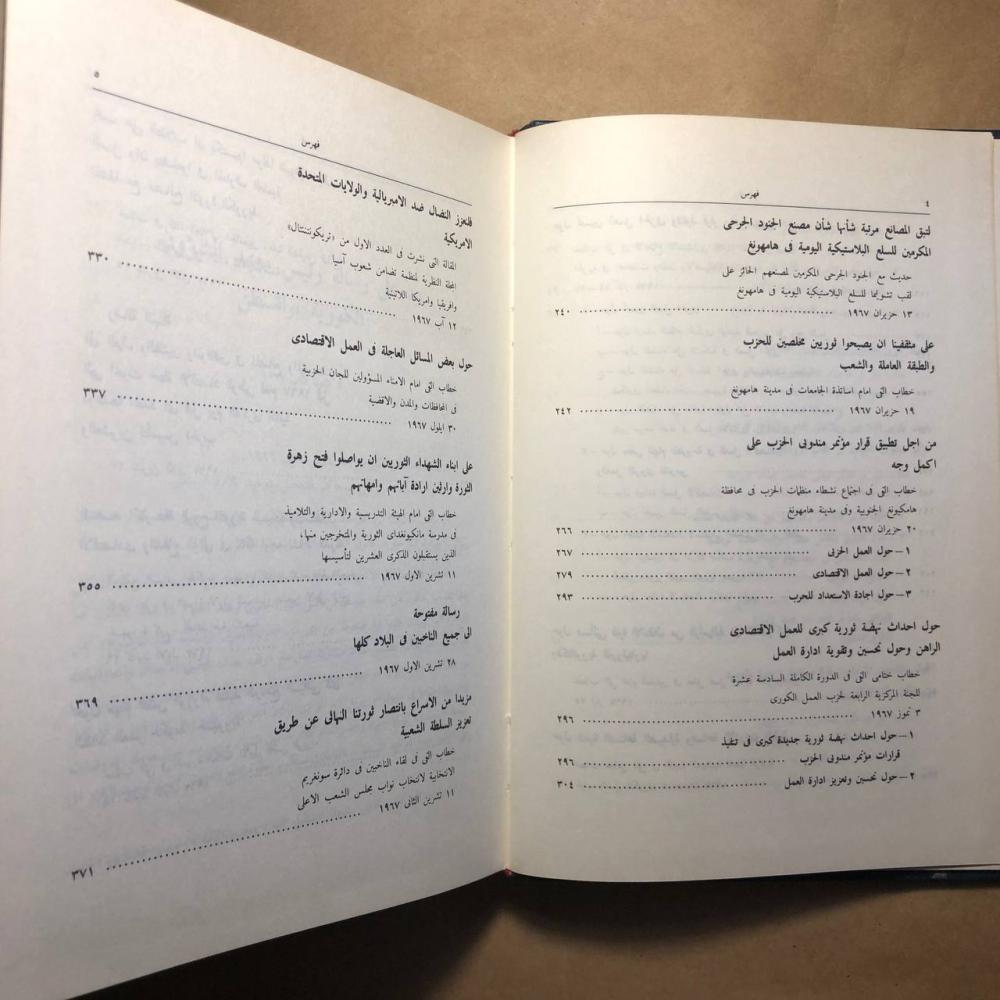 ٤
فهرس
لتبق المصانع مرتبة شأنها شأن مصنع الجنود الجرحى
المكرمين للسلع البلاستيكية اليومية فى هامهونغ
حديث مع الجنود الجرحى المكرمين لمصنعهم الحائز على
لقب تشوليما للسلع البلاستيكية اليومية فى هامهونغ
١٣ حزيران ١٩٦٧ ٢٤٠
على مثقفينا ان يصبحوا ثوريين مخلصين للحزب
والطبقة العاملة والشعب
خطاب القى امام اساتذة الجامعات فى مدينة هامهونغ
١٩ حزيران ١٩٦٧ ٢٤٢
من اجل تطبيق قرار مؤتمر مندوبى الحزب على
اكمل وجه
خطاب القى فى اجتماع نشطاء منظمات الحزب فى محافظة
هامكيونغ الجنوبية وفى مدينة هامهونغ
٢٠ حزيران ١٩٦٧ ٢٦٦
١ – حول العمل الحزبى ٢٦٧
٢ – حول العمل الاقتصادى ٢٧٩
٣ – حول اجادة الاستعداد للحرب ٢٩٣
حول احداث نهضة ثورية كبرى للعمل الاقتصادى
الراهن وحول تحسين وتقوية ادارة العمل
خطاب ختامى القى فى الدورة الكاملة السادسة عشرة
للجنة المركزية الرابعة لحزب العمل الكورى
٣ تموز ١٩٦٧ ٢٩٦
١ – حول احداث نهضة ثورية جديدة كبرى فى تنفيذ
قرارات مؤتمر مندوبى الحزب ٢٩٦
٢ – حول تحسين وتعزيز ادارة العمل ٣٠٤
٥
فهرس
فلنعزز النضال ضد الامبريالية والولايات المتحدة
الامريكية
المقالة التى نشرت فى العدد الاول من «تريكونتننتال»
المجلة النظرية لمنظمة تضامن شعوب آسيا
وافريقيا وامريكا اللاتينية ٣٣٠
١٢ آب ١٩٦٧
حول بعض المسائل العاجلة فى العمل الاقتصادى
خطاب القى امام الامناء المسؤولين للجان الحزبية
فى المحافظات والمدن والاقضية
٣٠ ايلول ١٩٦٧ ٣٣٧
على ابناء الشهداء الثوريين ان يواصلوا فتح زهرة
الثورة وارثين ارادة آبائهم وامهاتهم
خطاب القى امام الهيئة التدريسية والادارية والتلاميذ
فى مدرسة مانكيونغداى الثورية والمتخرجين منها،
الذين يستقبلون الذكرى العشرين لتأسيسها
١١ تشرين الاول ١٩٦٧ ٣٥٥
رسالة مفتوحة
الى جميع الناخبين فى البلاد كلها
٢٨ تشرين الاول ١٩٦٧ ٣٦٩
مزيدا من الاسراع بانتصار ثورتنا النهائى عن طريق
تعزيز السلطة الشعبية
خطاب القى فى لقاء الناخبين فى دائرة سونغريم
الانتخابية لانتخاب نواب مجلس الشعب الاعلى
١١ تشرين الثانى ١٩٦٧ ٣٧١